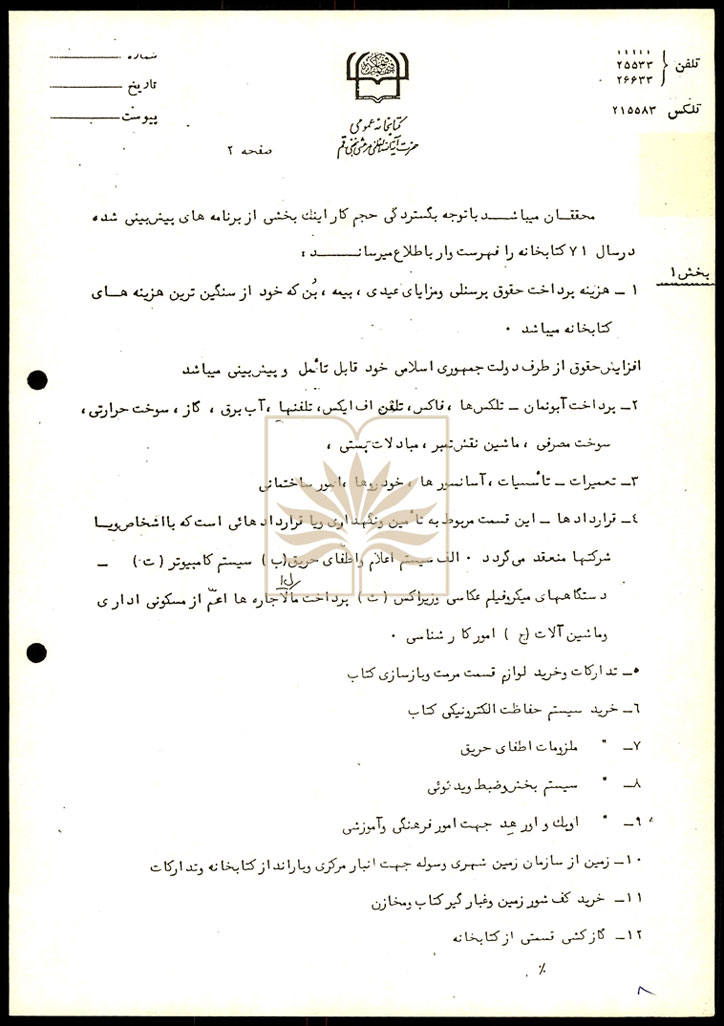 تلفن
۲۵۵۳۳
۲۶۶۳۳
تلکس ۲۱۵۵۸۳
شماره
تاریخ
پیوست
کتابخانه عمومی
حضرت آیت‌الله العظمی مرعشی نجفی قم
صفحه ۲
محققان میباشد باتوجه بگستردگی حجم کار اینك بخشی از برنامه های پیش‌بینی شده
درسال ۷۱ کتابخانه را فهرست وار باطلاع میرساند :
بخش ۱
۱ ــ هزینه پرداخت حقوق پرسنلی ومزایای عیدی ، بیمه ، بُن که خود از سنگین ترین هزینه های
کتابخانه میباشد .
افزایش حقوق از طرف دولت جمهوری اسلامی خود قابل تأمل و پیش‌بینی میباشد
۲ــ پرداخت آبونمان ــ تلکس‌ها ، فاکس ، تلفن اف ایکس ، تلفنها ، آب برق ، گاز ، سوخت حرارتی ،
سوخت مصرفی ، ماشین نقش تمبر ، مبادلات پستی ،
۳ــ تعمیرات ــ تأسیسات ، آسانسورها ، خودروها ، امور ساختمانی
۴ــ قراردادها ــ این قسمت مربوط به تأمین ونگهداری ویا قراردادهائی است که بااشخاص‌ویا
شرکتها منعقد می‌گردد . الف سیستم اعلام واطفای حریق (ب) سیستم کامپیوتر (ت) ــ
دستگاههای میکروفیلم عکاسی وزیراکس (ث) پرداخت مال‌الاجاره ها اعمّ از مسکونی اداری
وماشین آلات (ج) امور کارشناسی .
۵ــ تدارکات وخرید لوازم قسمت مرمت وبازسازی کتاب
۶ــ خرید سیستم حفاظت الکترونیکی کتاب
۷ــ " ملزومات اطفای حریق
۸ــ " سیستم پخش‌وضبط ویدئوئی
۹ــ " اوپك و اورهد جهت امور فرهنگی وآموزشی
۱۰ــ زمین از سازمان زمین شهری وسوله جهت انبار مرکزی وبارانداز کتابخانه وتدارکات
۱۱ــ خرید کف شور زمین وغبارگیر کتاب ومخازن
۱۲ــ گازکشی قسمتی از کتابخانه
٪
۸